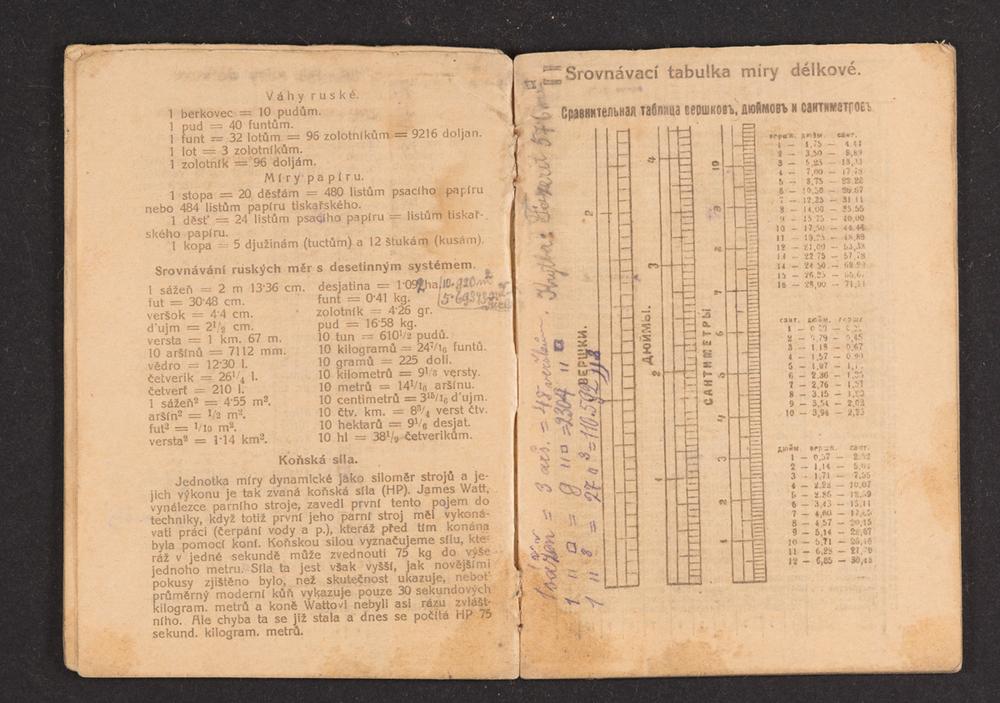 Váhy ruské.
1 berkovec = 10 pudům.
1 pud = 40 funtům.
1 funt = 32 lotům = 96 zolotníkům = 9216 doljan.
1 lot = 3 zolotníkům.
1 zolotník = 96 doljám.
Míry papíru.
1 stopa = 20 děsťám = 480 listům psacího papíru
nebo 484 listům papíru tiskařského.
1 děsť = 24 listům psacího papíru = listům tiskař-
ského papíru.
1 kopa = 5 djužinám (tuctům) a 12 štukám (kusám).
Srovnávání ruských měr s desetinným systémem.
1 sážeň = 2 m 13·36 cm.
fut = 30·48 cm.
veršok = 4·4 cm.
d'ujm = 2½ cm.
versta = 1 km. 67 m.
10 aršinů = 7112 mm.
vědro = 12·30 l.
četverik = 26¼ l.
četverť = 210 l.
1 sážeň² = 4·55 m².
aršin² = ½ m².
fut² = ¹/₁₀ m².
versta² = 1·14 km².
desjatina = 1·092 ha
funt = 0·41 kg.
zolotník = 4·26 gr.
pud = 16·58 kg.
10 tun = 610½ pudů.
10 kilogramů = 24⁷/₁₆ funtů.
10 gramů = 225 dolí.
10 kilometrů = 9⅜ versty.
10 metrů = 14¹/₁₆ aršinu.
10 centimetrů = 3¹⁵/₁₆ d'ujm.
10 čtv. km. = 8¾ verst čtv.
10 hektarů = 9⅙ desjat.
10 hl = 38¹/₉ četverikům.
Koňská síla.
Jednotka míry dynamické jako siloměr strojů a je-
jich výkonu je tak zvaná koňská síla (HP). James Watt,
vynálezce parního stroje, zavedl první tento pojem do
techniky, když totiž první jeho parní stroj měl vykoná-
vati práci (čerpání vody a p.), kteráž před tím konána
byla pomocí koní. Koňskou silou vyznačujeme sílu, kte-
ráž v jedné sekundě může zvednouti 75 kg do výše
jednoho metru. Síla ta jest však vyšší, jak novějšími
pokusy zjištěno bylo, než skutečnost ukazuje, neboť
průměrný moderní kůň vykazuje pouze 30 sekundových
kilogram. metrů a koně Wattovi nebyli asi rázu zvlášt-
ního. Ale chyba ta se již stala a dnes se počítá HP 75
sekund. kilogram. metrů.
Srovnávací tabulka míry délkové.
Сравнительная таблица вершковъ, дюймовъ и сантиметровъ
ВЕРШКИ.
1 2
ДЮЙМЫ.
1 2 3 4
САНТИМЕТРЫ
1 2 3 4 7 10
вершк. дюйм. сант.
1 — 1,75 — 4,44
2 — 3,50 — 8,89
3 — 5,25 — 13,33
4 — 7,00 — 17,78
5 — 8,75 — 22,22
6 — 10,50 — 26,67
7 — 12,25 — 31,11
8 — 14,00 — 35,56
9 — 15,75 — 40,00
10 — 17,50 — 44,44
11 — 19,25 — 48,89
12 — 21,00 — 53,33
13 — 22,75 — 57,78
14 — 24,50
15 — 26,25
16 — 28,00 — 71,11
сант. дюйм. верш.
3 — 1,18 — 0,67
4 — 1,57 — 0,90
6 — 2,36 — 1,35
7 — 2,76
8 — 3,15
9 — 3,54 — 2,02
10 — 3,94 — 2,25
дюйм. вершк. сант.
1 — 0,57
2 — 1,14
3 — 1,71
4 — 2,28
5 — 2,86
6 — 3,43
7 — 4,00
8 — 4,57
9 — 5,14
10 — 5,71
11 — 6,28
12 — 6,85 — 30,48
= 3 arš. = 48
= 9 = 2304
= 27 = 110.592